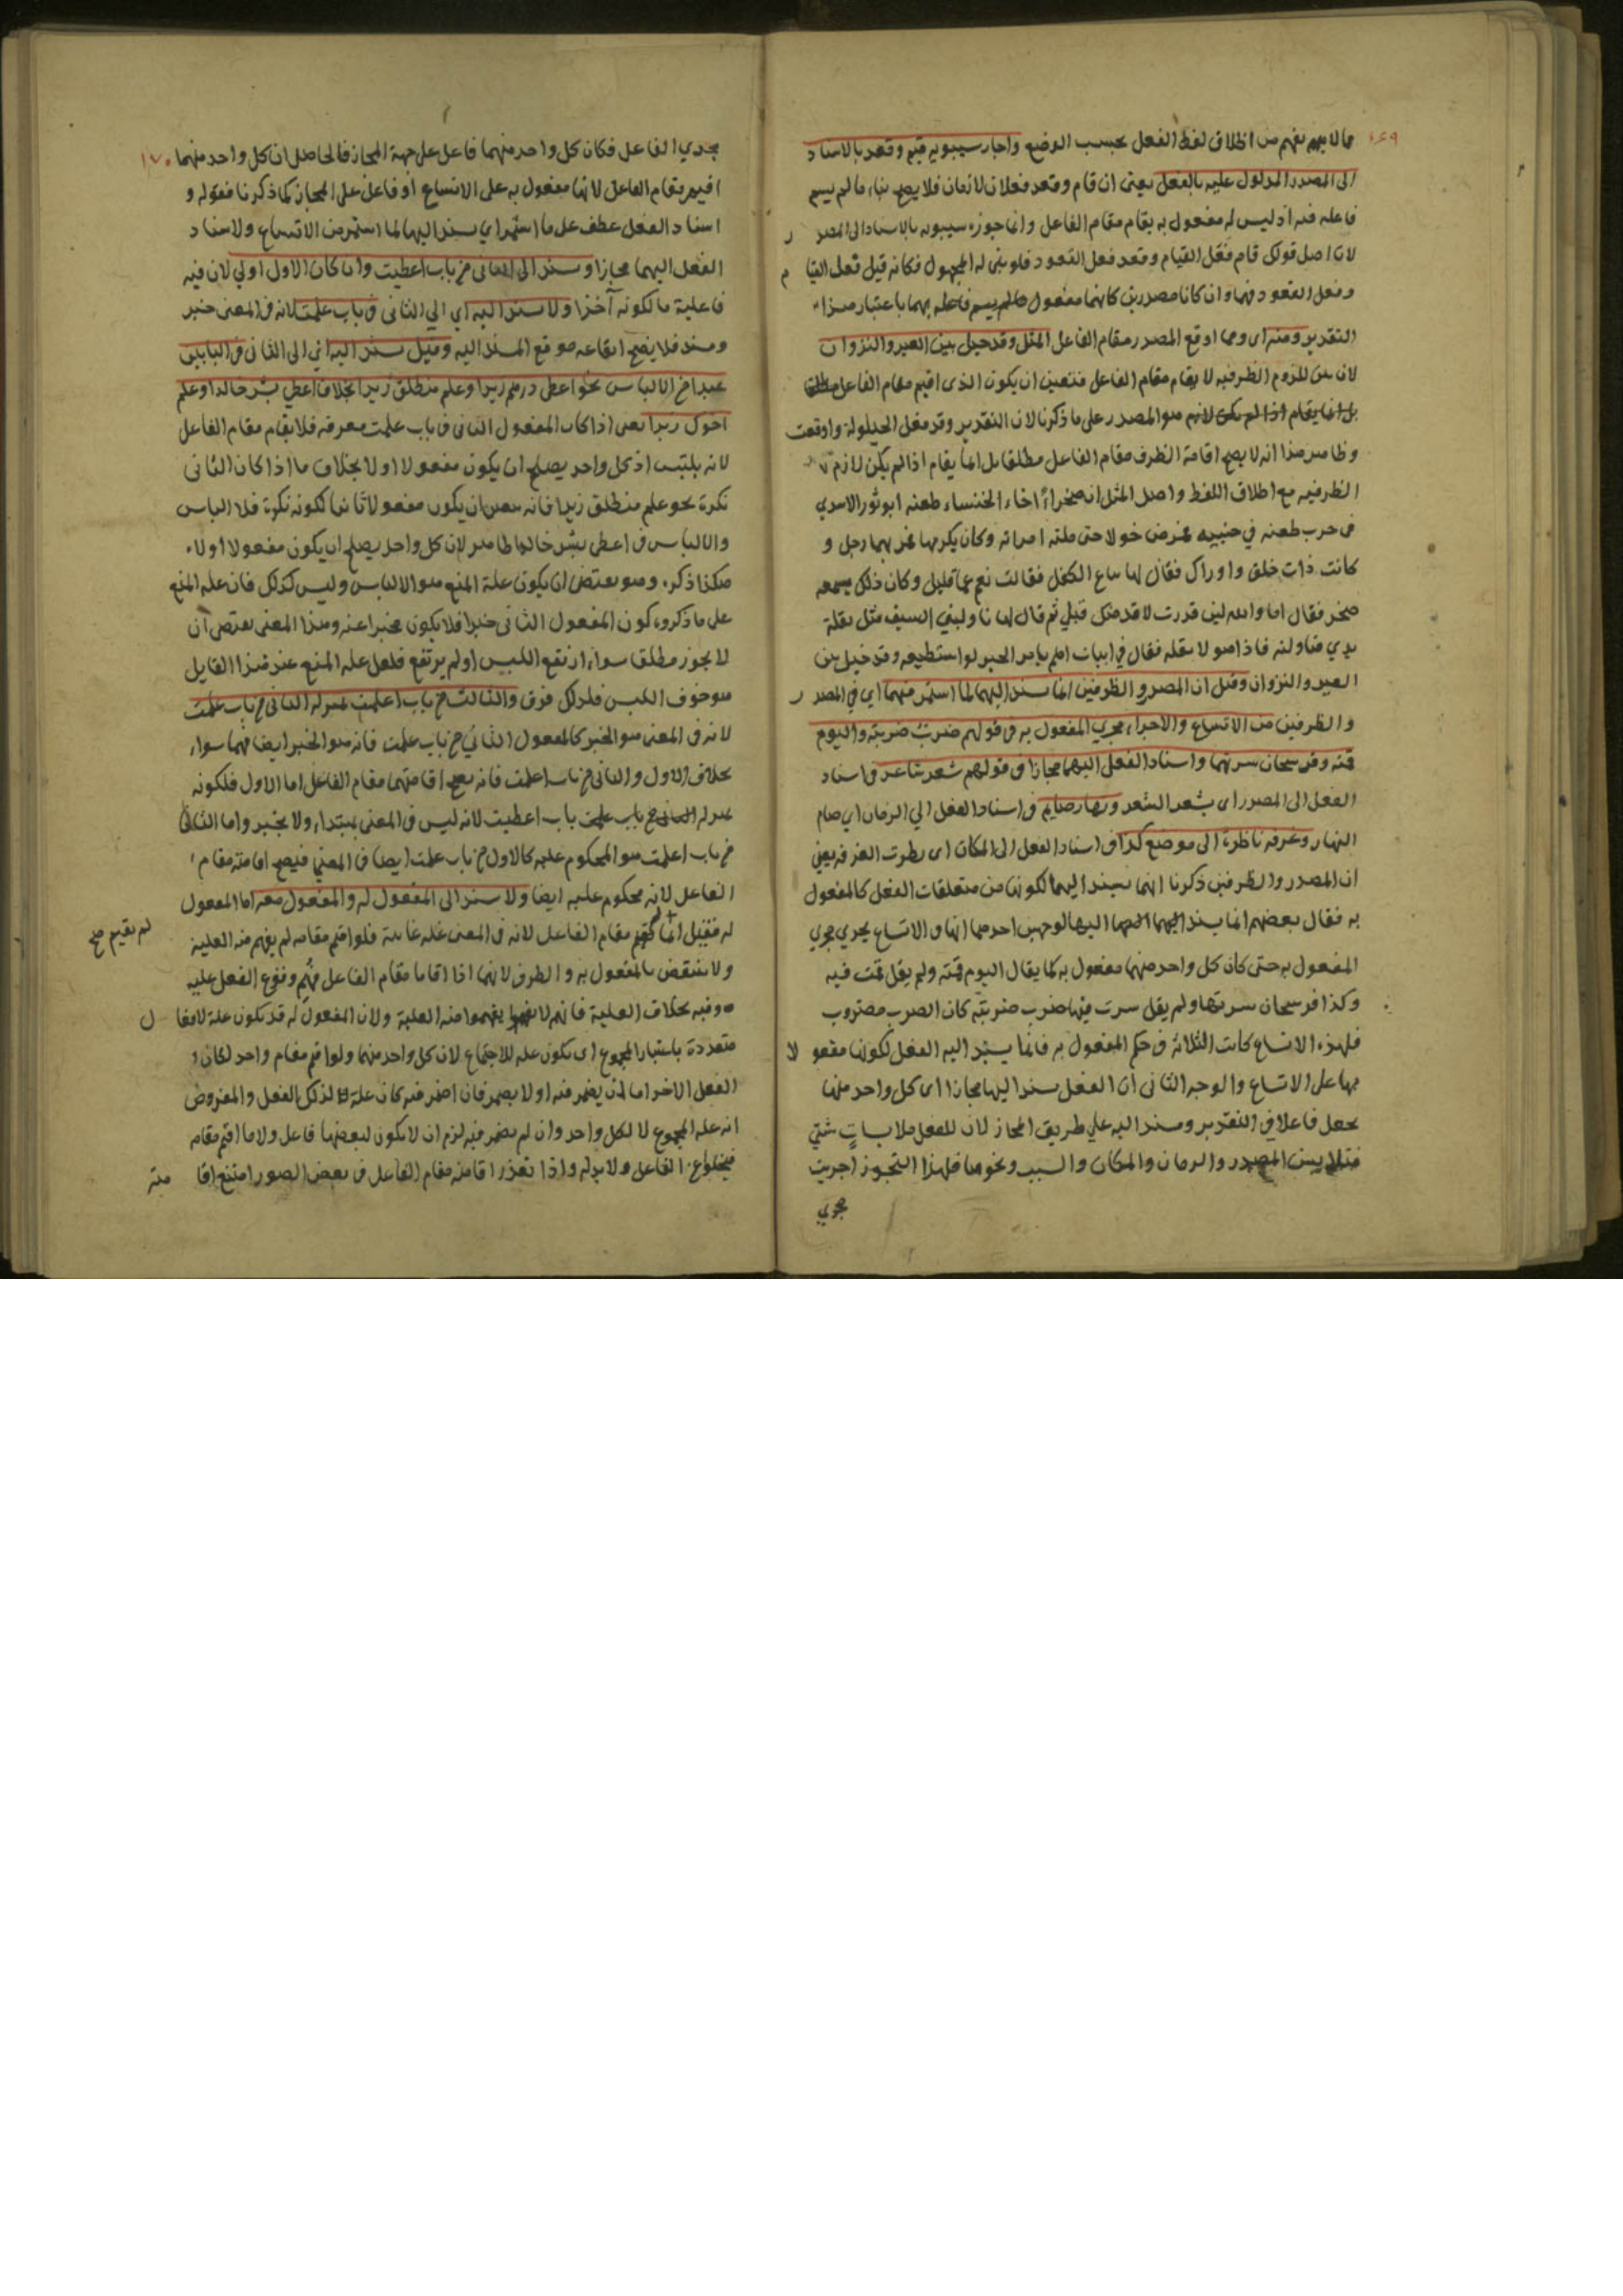 ١٦٩
مالا يفهم من اطلاق لفظ الفعل بحسب الوضع واجاز سيبويه قيم وقعد بالاسناد
الى المصدر المدلول عليه بالفعل يعنى ان قام وقعد فعلان لازمان فلا يصح بناء ما لم يسم
فاعله منه اذ ليس له مفعول به يقام مقام الفاعل وانما جوزه سيبويه بالاسناد الى المصدر
لان اصل قولك قام فعل القيام وقعد فعل القعود فلو بنى له المجهول فكانه قيل فعل القيام
وفعل القعود فهما وان كانا مصدرين كانهما مفعول مالم يسم فاعله بهما باعتبار هذا
التقدير ومنه اى ومما اوقع المصدر مقام الفاعل المثل وقد حيل بين العير والنزوان
لان بين للزوم الظرفية لا يقام مقام الفاعل فتعين ان يكون الذى اقيم مقام الفاعل
هو المصدر على ما ذكرنا لان التقدير وقد فعل الحيلولة واوقعت
وظاهر هذا انه لا يصح اقامة الظرف مقام الفاعل مطلقا بل انما يقام اذا لم يكن لازم
الظرفيه مع اطلاق اللفظ واصل المثل ان صخرا اخاء الخنساء طعنه ابو ثور الاسدي
فى حرب طعنه في جنبيه فمرض حولا حتى ملته امراته وكان يكرمها فمر بهما رجل و
كانت ذات خلق واوراك فقال لها يباع الكفل فقالت نعم عما قليل وكان ذلك يسمعه
صخر فقال اما والله لين قدرت لاقدمنك قبلي ثم قال لها ناولينى السيف هل يقله
يدي فناولته فاذا هو لا يقله فقال في ابيات اهم بامر الحزم لو استطيعه وقد حيل بين
العير والنزوان وقيل ان المصدر والظرفين انما يسند اليهما لما استمر فيهما اي في المصدر
والظرفين من الاتساع والاجراء مجرى المفعول به فى قولهم ضرب ضربته واليوم
قمته وفرسخان سرتهما واسناد الفعل اليهما مجازا فى قولهم شعر شاعر فى اسناد
الفعل الى المصدر اى شعر الشعر ونهاره صايم فى اسناد الفعل الي الزمان اي صام
النهار وغرفه ناظرة الى موضع كذا فى اسناد الفعل الى المكان اى نظرت الغرفه يعني
ان المصدر والظرفين ذكرنا انهما يسند اليهما لكونها من متعلقات الفعل كالمفعول
به فقال بعضهم انما يسند اليها لوجهين احدهما انها فى الاتساع يجري مجري
المفعول به حتى كان كل واحد منهما مفعول به كما يقال اليوم قمته ولم يقل قمت فيه
وكذا فرسخان سرتها ولم يقل سرت فيها ضرب ضربته كان الضرب مضروب
فلهذه الاتساع كانت الثلاثه فى حكم المفعول به فانما يسند اليه الفعل لكونها مفعولا
بها على الاتساع والوجه الثانى ان الفعل يسند اليها مجازا اى كل واحد منها
يجعل فاعلا فى التقدير ويسند اليه علي طريق المجاز لان للفعل ملابسات شتي
فتلابس المصدر والزمان والمكان والسبب ونحوها فلهذا التجوز اجريت
مجري
١٧٠
مجري الفاعل فكان كل واحد منهما فاعل على جهة المجاز فالحاصل ان كل واحد منهما
اقيم مقام الفاعل لانها مفعول به على الاتساع او فاعل على المجاز كما ذكرنا فقوله و
اسناد الفعل عطف على ما استمر اي يسند اليها لما استمر من الاتساع ولاسناد
الفعل اليهما مجازا ويسند الى الثانى من باب اعطيت وان كان الاول اولي لان فيه
فاعلية ما لكونه آخذا ولا يسند اليه اي الي الثانى فى باب علمت لانه فى المعنى خبر
ومسند فلا يصح ايقاعه موقع المسند اليه وقيل يسند اليه اي الى الثانى فى البابين
عند امن الالباس نحو اعطى درهم زيدا وعلم منطلق زيدا بخلاف اعطي بشر خالدا وعلم
اخوك زيدا يعنى اذا كان المفعول الثانى فى باب علمت معرفه فلا يقام مقام الفاعل
لانه يلتبس اذ كل واحد يصلح ان يكون مفعولا اولا بخلاف ما اذا كان الثانى
نكرة نحو علم منطلق زيدا فانه تعين ان يكون مفعولا ثانيا لكونه نكرة فلا الباس
والالباس فى اعطى بشر خالدا ظاهر لان كل واحد يصلح ان يكون مفعولا اولا
هكذا ذكره وهو يقتضى ان يكون علة المنع هو الالباس وليس كذلك فان علة المنع
على ما ذكروه كون المفعول الثانى خبرا فلا يكون مخبرا عنه وهذا المعنى يقتضى ان
لا يجوز مطلقا سواء ارتفع اللبس او لم يرتفع فلعل علة المنع عند هذا القايل
هو خوف اللبس فلذلك فرق والثالث من باب اعلمت بمنزلة الثانى من باب علمت
لانه فى المعنى هو الخبر كالمفعول الثاني من باب علمت فانه هو الخبر ايضا فهما سواء
بخلاف الاول والثانى من باب اعلمت فانه يصح اقامتهما مقام الفاعل اما الاول فلكونه
بمنزلة باب اعطيت لانه ليس فى المعنى بمبتداء ولا بخبر واما الثانى
من باب اعلمت هو المحكوم عليه كالاول من باب علمت ايضا فى المعني فيصح اقامته مقام
الفاعل لانه محكوم عليه ايضا ولا يسند الى المفعول له والمفعول معه اما المفعول
له فقيل انما لم يقم مقام الفاعل لانه فى المعنى علة غائية فلو اقيم مقامه لم يفهم منه العلية
لم يقيم صح
ولا ينتقض بالمفعول به والظرف لانهما اذا اقاما مقام الفاعل فهم وقوع الفعل عليه
وفيه بخلاف العلية فانهم لا يفهموا منه العلية ولان المفعول له قد يكون علة لافعال
متعددة باعتبار المجموع اى تكون علة للاجتماع لان كل واحد منهما ولو اقيم مقام واحد لكان
الفعل الاخر اما ان يضمر فيه او لا يضمر فان اضمر فيه كان علة لذلك الفعل والمفروض
انه علة المجموع لا لكل واحد وان لم يضمر فيه لزم ان لا يكون لبعضها فاعل ولا ما اقيم مقامه
فيخلوا عن الفاعل ولا بد له واذا تعذر اقامته مقام الفاعل فى بعض الصور امتنع اقا
مته